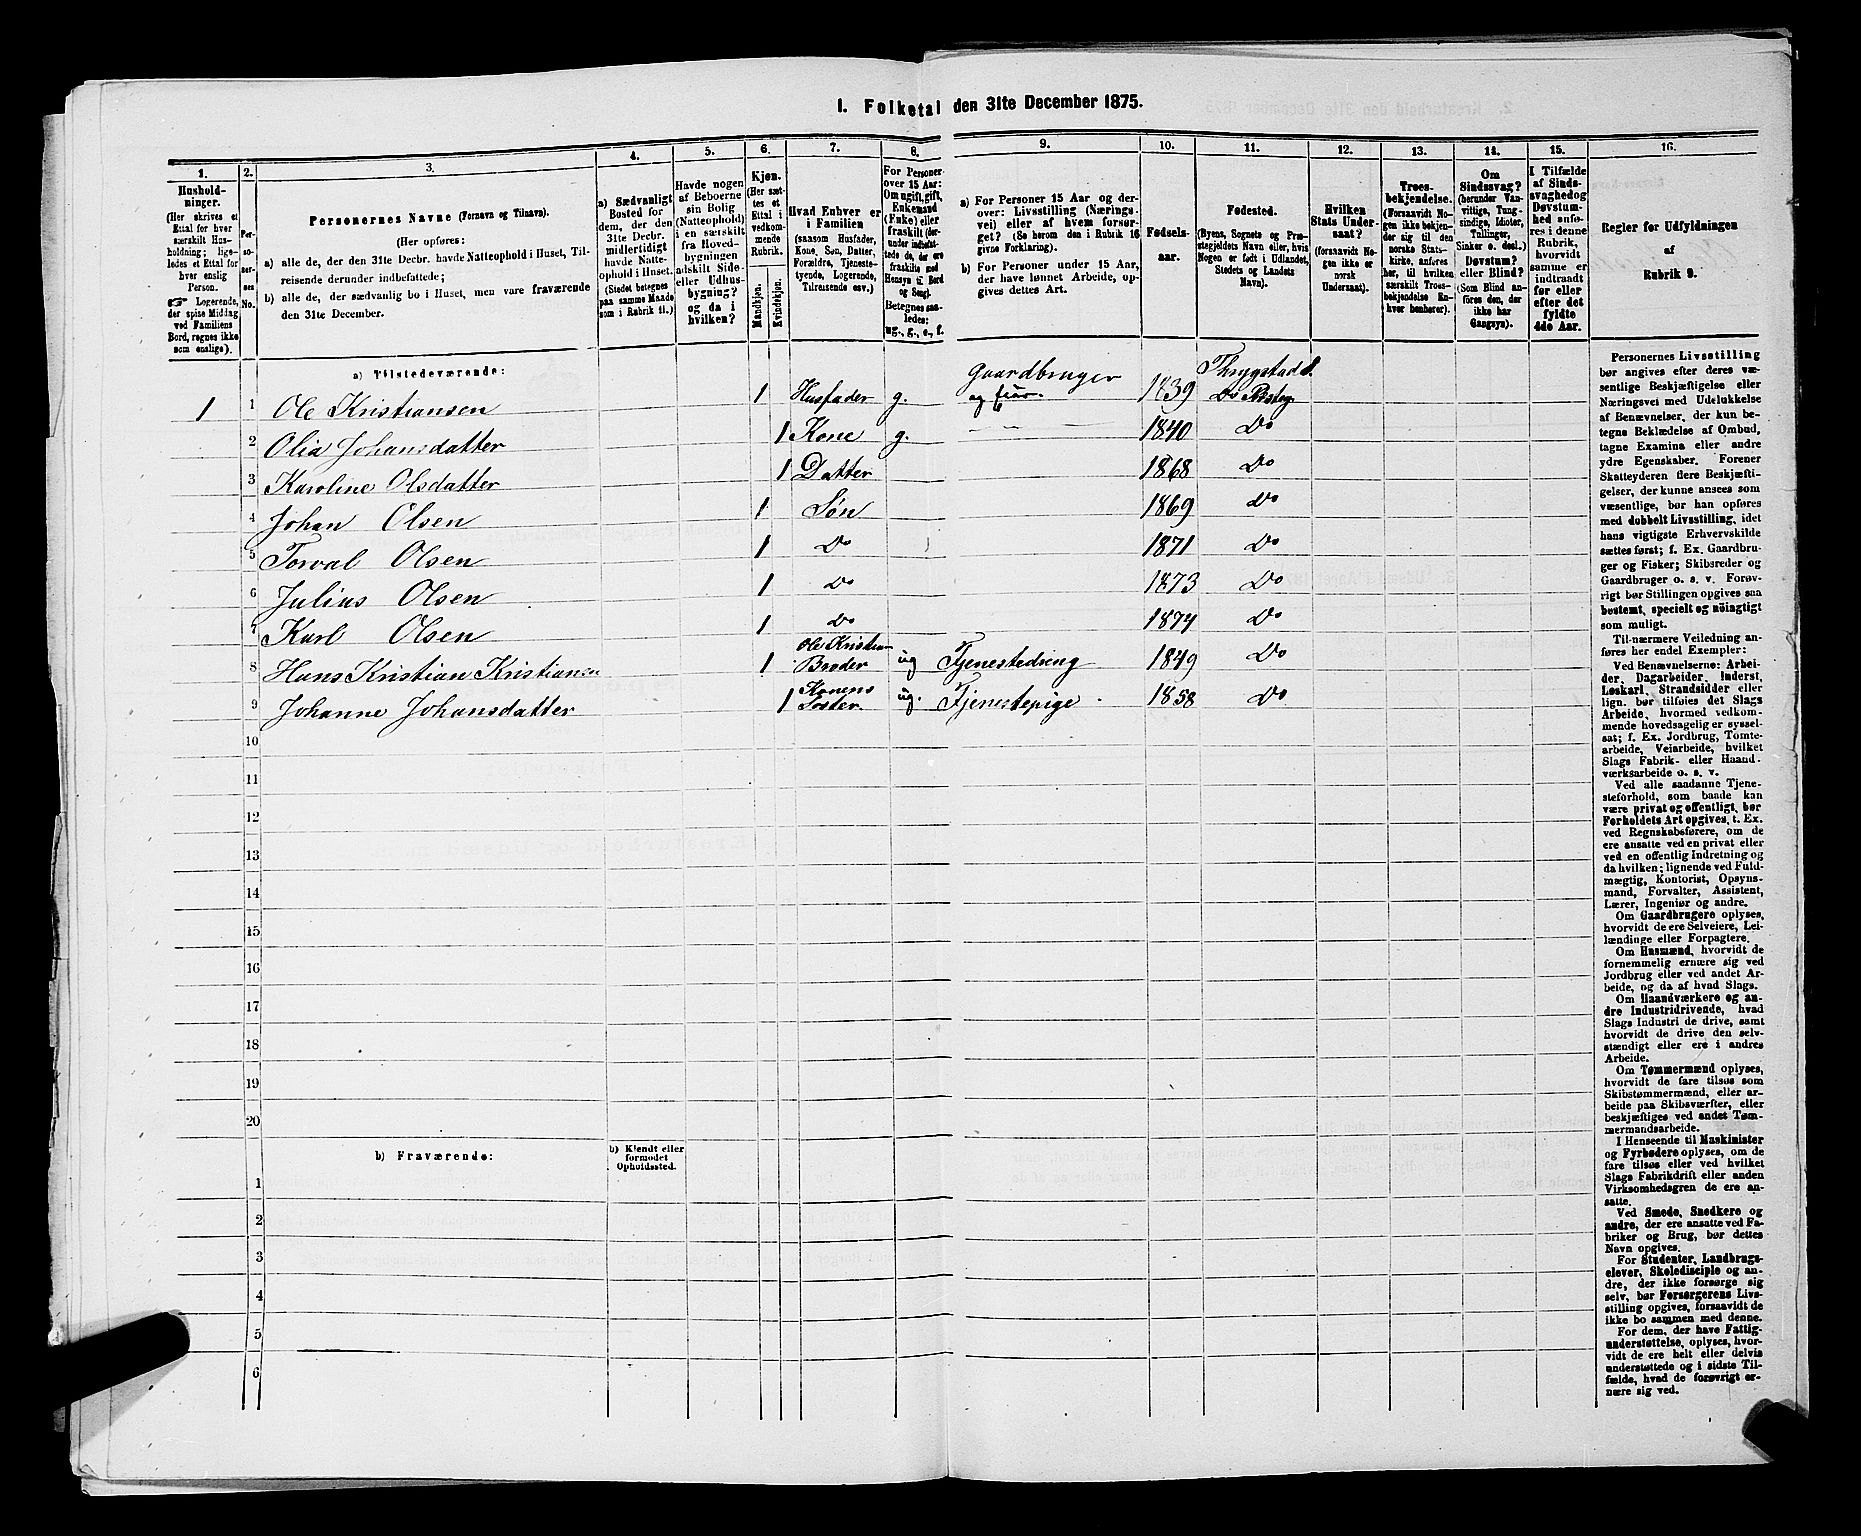 1. Folketal den 31te December 1875.
1. 2. 3. 4. 5. 6. 7. 8. 9. 10. 11. 12. 13. 14. 15. 16.
Hushold-
ninger.
(Her skrives et
Ettal for hver
særskilt Hus-
holdning; lige-
ledes et Ettal for
hver enslig
Person.
☞ Logerende,
der spise Middag
ved Familiens
Bord, regnes ikke
som enslige).
Per-
so-
ner-
nes
No.
Personernes Navne (Fornavn og Tilnavn).
(Her opføres:
a) alle de, der den 31te Decbr. havde Natteophold i Huset, Til-
reisende derunder indbefattede;
b) alle de, der sædvanlig bo i Huset, men vare fraværende
den 31te December.
a) Sædvanligt
Bosted for
dem, der den
31te Decbr.
midlertidigt
havde Natte-
ophold i Huset.
(Stedet betegnes
paa samme Maade
som i Rubrik 11.)
Havde nogen
af Beboerne
sin Bolig
(Natteophold)
i en særskilt
fra Hoved-
bygningen
adskilt Side-
eller Udhus-
bygning?
og da i
hvilken?
Kjøn.
(Her sæt-
tes et
Ettal i
vedkom-
mende
Rubrik.
Mandkjøn.
Kvindekjøn.
Hvad Enhver er
i Familien
(saasom Husfader,
Kone, Søn, Datter,
Forældre, Tjeneste-
tyende, Logerende,
Tilreisende osv.)
For Personer
over 15 Aar:
Om ugift, gift,
Enkemand
(Enke) eller
fraskilt (der-
under indbefat-
tede de, der ere
fraskilte med
Hensyn til Bord
og Seng).
Betegnes saa-
ledes:
ug., g., e., f.
a) For Personer 15 Aar og der-
over: Livsstilling (Nærings-
vei) eller af hvem forsør-
get? (Se herom den i Rubrik 16
givne Forklaring).
b) For Personer under 15 Aar,
der have lønnet Arbeide, op-
gives dettes Art.
Fødsels-
aar.
Fødested.
(Byens, Sognets og Præ-
stegjeldets Navn eller, hvis
Nogen er født i Udlandet,
Stedets og Landets
Navn).
Hvilken
Stats Under-
saat?
(forsaavidt No-
gen ikke er
norsk
Undersaat).
Troes-
bekjendelse.
(Forsaavidt No-
gen ikke bekjen-
der sig til den
norske Stats-
kirke, anføres
her, til hvilken
særskilt Troes-
bekjendelse En-
hver henhører).
Om
Sindssvag?
(herunder Van-
vittige, Tung-
sindige, Idioter,
Tullinger,
Sinker o. desl.)
Døvstum?
eller Blind?
(Som Blind an-
føres den, der
ikke har
Gangsyn).
I Tilfælde
af Sinds-
svaghed og
Døvstum-
hed anfø-
res i denne
Rubrik,
hvorvidt
samme er
indtraadt
før eller
efter det
fyldte
4de Aar.
Regler for Udfyldningen
af
Rubrik 9.
a) Tilstedeværende:
1 1 Ole Kristiansen 1 Husfader g. Gaardbruger og Eier. 1839 Thrygstad S. Do Præsteg
2 Olia Johansdatter 1 Kone g. 1840 Do
3 Karoline Olsdatter 1 Datter 1868 Do
4 Johan Olsen 1 Søn 1869 Do
5 Torval Olsen 1 Do 1871 Do
6 Julius Olsen 1 Do 1873 Do
7 Karl Olsen 1 Do 1874 Do
8 Hans Kristian Kristiansen 1 Ole Kristian Broder ug Tjenestedreng 1849 Do
9 Johanne Johansdatter 1 Konens Søster ug. Tjenestepige 1858 Do
10
11
12
13
14
15
16
17
18
19
20
b) Fraværende:
b) Kjendt eller
formodet
Opholdssted.
1
2
3
4
5
6
Personernes Livsstilling
bør angives efter deres væ-
sentlige Beskjæftigelse eller
Næringsvei med Udelukkelse
af Benævnelser, der kun be-
tegne Beklædelse af Ombud,
tagne Examina eller andre
ydre Egenskaber. Forener
Skatteyderen flere Beskjæfti-
gelser, der kunne ansees som
væsentlige, bør han opføres
med dobbelt Livsstilling, idet
hans vigtigste Erhvervskilde
sættes først; f. Ex. Gaardbru-
ger og Fisker; Skibsreder og
Gaardbruger o. s. v. Forøv-
rigt bør Stillingen opgives saa
bestemt, specielt og nøiagtigt
som muligt.
Til nærmere Veiledning an-
føres her endel Exempler:
Ved Benævnelserne: Arbei-
der, Dagarbeider, Inderst,
Løskarl, Strandsidder eller
lign. bør tilføies det Slags
Arbeide, hvormed vedkom-
mende hovedsagelig er syssel-
sat; f. Ex. Jordbrug, Tomte-
arbeide, Veiarbeide, hvilket
Slags Fabrik- eller Haand-
værksarbeide o. s. v.
Ved alle saadanne Tjene-
steforhold, som baade kan
være privat og offentligt, bør
Forholdets Art opgives, t. Ex.
ved Regnskabsførere, om de
ere ansatte ved en privat eller
ved en offentlig Indretning og
da hvilken; lignende ved Fuld-
mægtig, Kontorist, Opsyns-
mand, Forvalter, Assistent,
Lærer, Ingeniør og andre.
Om Gaardbrugere oplyses,
hvorvidt de ere Selveiere, Lei-
lændinge eller Forpagtere.
Om Husmænd, hvorvidt de
fornemmelig ernære sig ved
Jordbrug eller ved andet Ar-
beide, og da af hvad Slags.
Om Haandværkere og an-
dre Industridrivende, hvad
Slags Industri de drive, samt
hvorvidt de drive den selv-
stændigt eller ere i andres
Arbeide.
Om Tømmermænd oplyses,
hvorvidt de fare tilsøs som
Skibstømmermænd, eller ar-
beide paa Skibsværfter, eller
beskjæftiges ved andet Tøm-
mermandsarbeide.
I Henseende til Maskinister
og Fyrbødere oplyses, om de
fare tilsøs eller ved hvilket
Slags Fabrikdrift eller anden
Virksomhedsgren de ere an-
satte.
Ved Smede, Snedkere og
andre, der ere ansatte ved Fa-
briker og Brug, bør dettes
Navn opgives.
For Studenter, Landbrugs-
elever, Skoledisciple og an-
dre, der ikke forsørge sig
selv, bør Forsørgerens Livs-
stilling opgives, forsaavidt de
ikke bo sammen med denne.
For dem, der have Fattig-
understøttelse, oplyses, hvor-
vidt de ere helt eller delvis
understøttede og i sidste Til-
fælde, hvad de forøvrigt er-
nære sig ved.